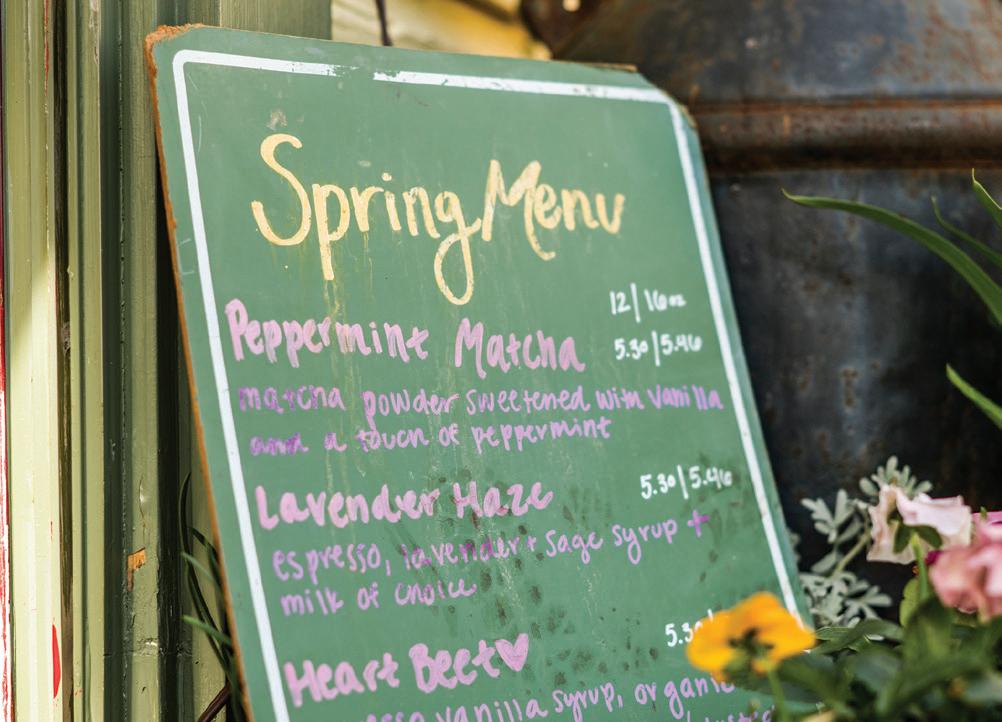 Spring Menu
12 | 16oz
Peppermint Matcha 5.30 | 5.46
matcha powder sweetened with vanilla
and a touch of peppermint
Lavender Haze 5.30 | 5.46
espresso, lavender + sage syrup +
milk of choice
Heart Beet♥
vanilla syrup, organic